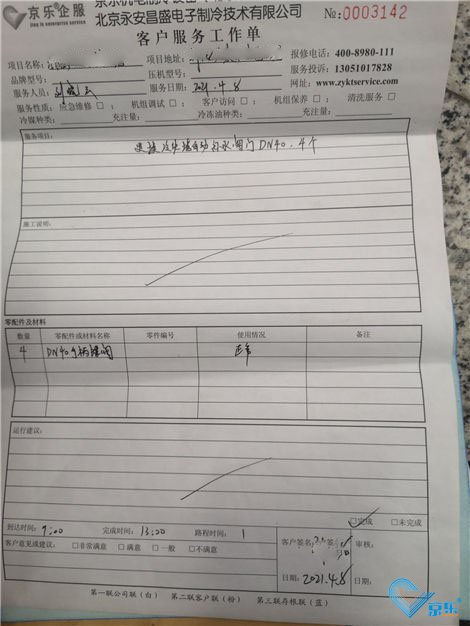 京乐企服
北京永安昌盛电子制冷技术有限公司
No: 0003142
客户服务工作单
项目名称: 项目地址: 报修电话: 400-8980-111
品牌型号: 压机型号: 服务投诉: 13051017828
服务人员: 服务日期: 2021.4.8 www.zyktservice.com
服务性质: 应急维修 □ ; 机组调试 □ ; 客户访问 □ ; 机组保养 □ ; 清洗服务 □
冷媒种类: 充注量: 冷冻油种类: 充注量:
服务项目:
更换冷却塔自动补水阀门DN40. 4个
施工说明:
零配件及材料
数量 零配件或材料名称 零件编号 使用情况 备注
4 DN40手柄蝶阀 正常
运行建议:
☑完成 □未完成
到达时间: 9:00 完成时间: 13:00 路程时间: 1
客户意见或建议: □非常满意 □满意 □一般 □不满意
客户签名: 审核:
日期: 2021.4.8 日期:
第一联公司联（白） 第二联客户联（粉） 第三联存根联（蓝）
京乐